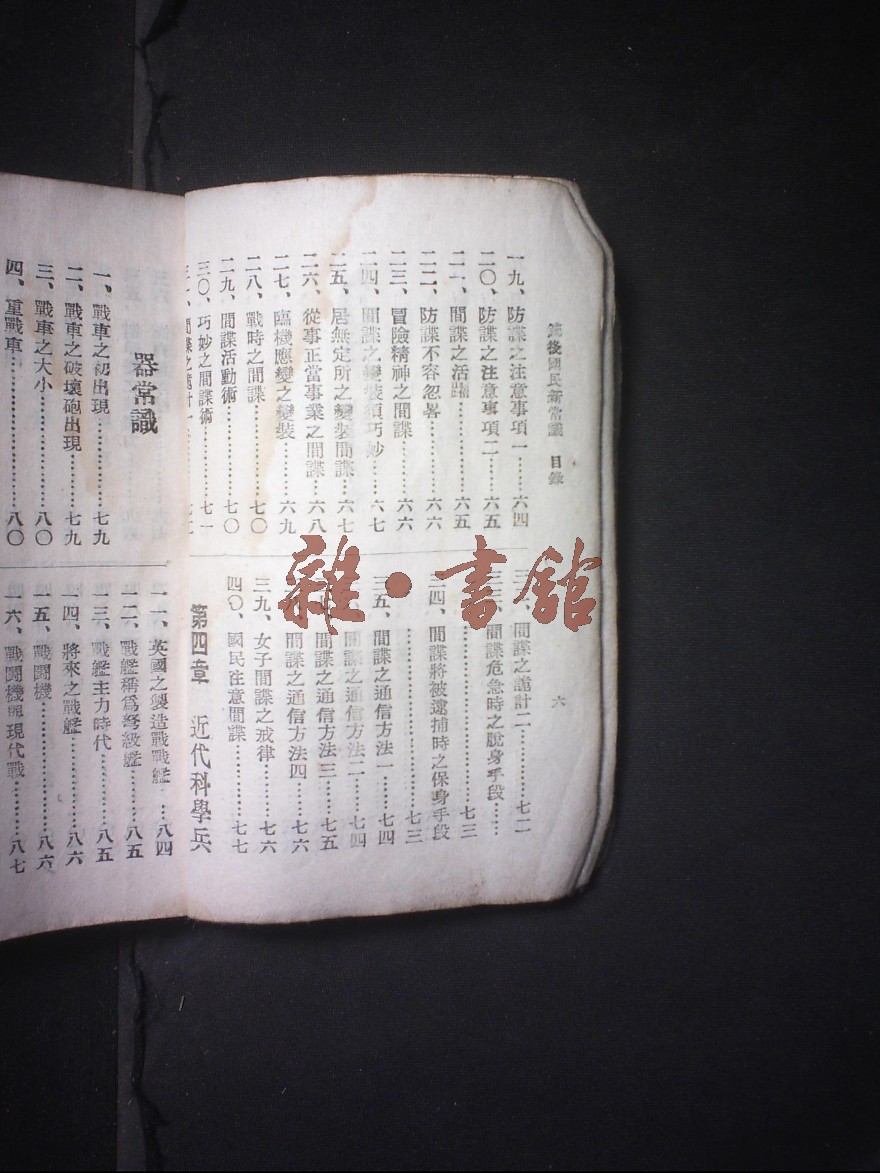 後國民新常識 目錄
一九、防諜之注意事項一……六四
二〇、防諜之注意事項二……六五
二一、間諜之活躍……六五
二二、防諜不容忽畧……六六
二三、冒險精神之間諜……六六
二四、間諜之變裝須巧妙……六七
二五、居無定所之變裝間諜…六七
二六、從事正當事業之間諜…六八
二七、臨機應變之變裝……六九
二八、戰時之間諜……七〇
二九、間諜活動術……七〇
三〇、巧妙之間諜術……七一
三一、間諜之詭計一……
六
間諜之詭計二……七二
間諜危急時之脫身手段……
……七三
三四、間諜將被逮捕時之保身手段
……七三
三五、間諜之通信方法一……七四
間諜之通信方法二……七四
間諜之通信方法三……七五
間諜之通信方法四……七六
三九、女子間諜之戒律……七六
四〇、國民注意間諜……七七
第四章 近代科學兵
器常識
一、戰車之初出現……七九
二、戰車之破壞砲出現……七九
三、戰車之大小……八〇
四、重戰車……八〇
一一、英國之製造戰鬪艦…八四
一二、戰艦稱爲弩級艦……八五
一三、戰艦主力時代……八五
一四、將來之戰艦……八六
一五、戰鬪機……八六
一六、戰鬪機與現代戰……八七
雜·書館